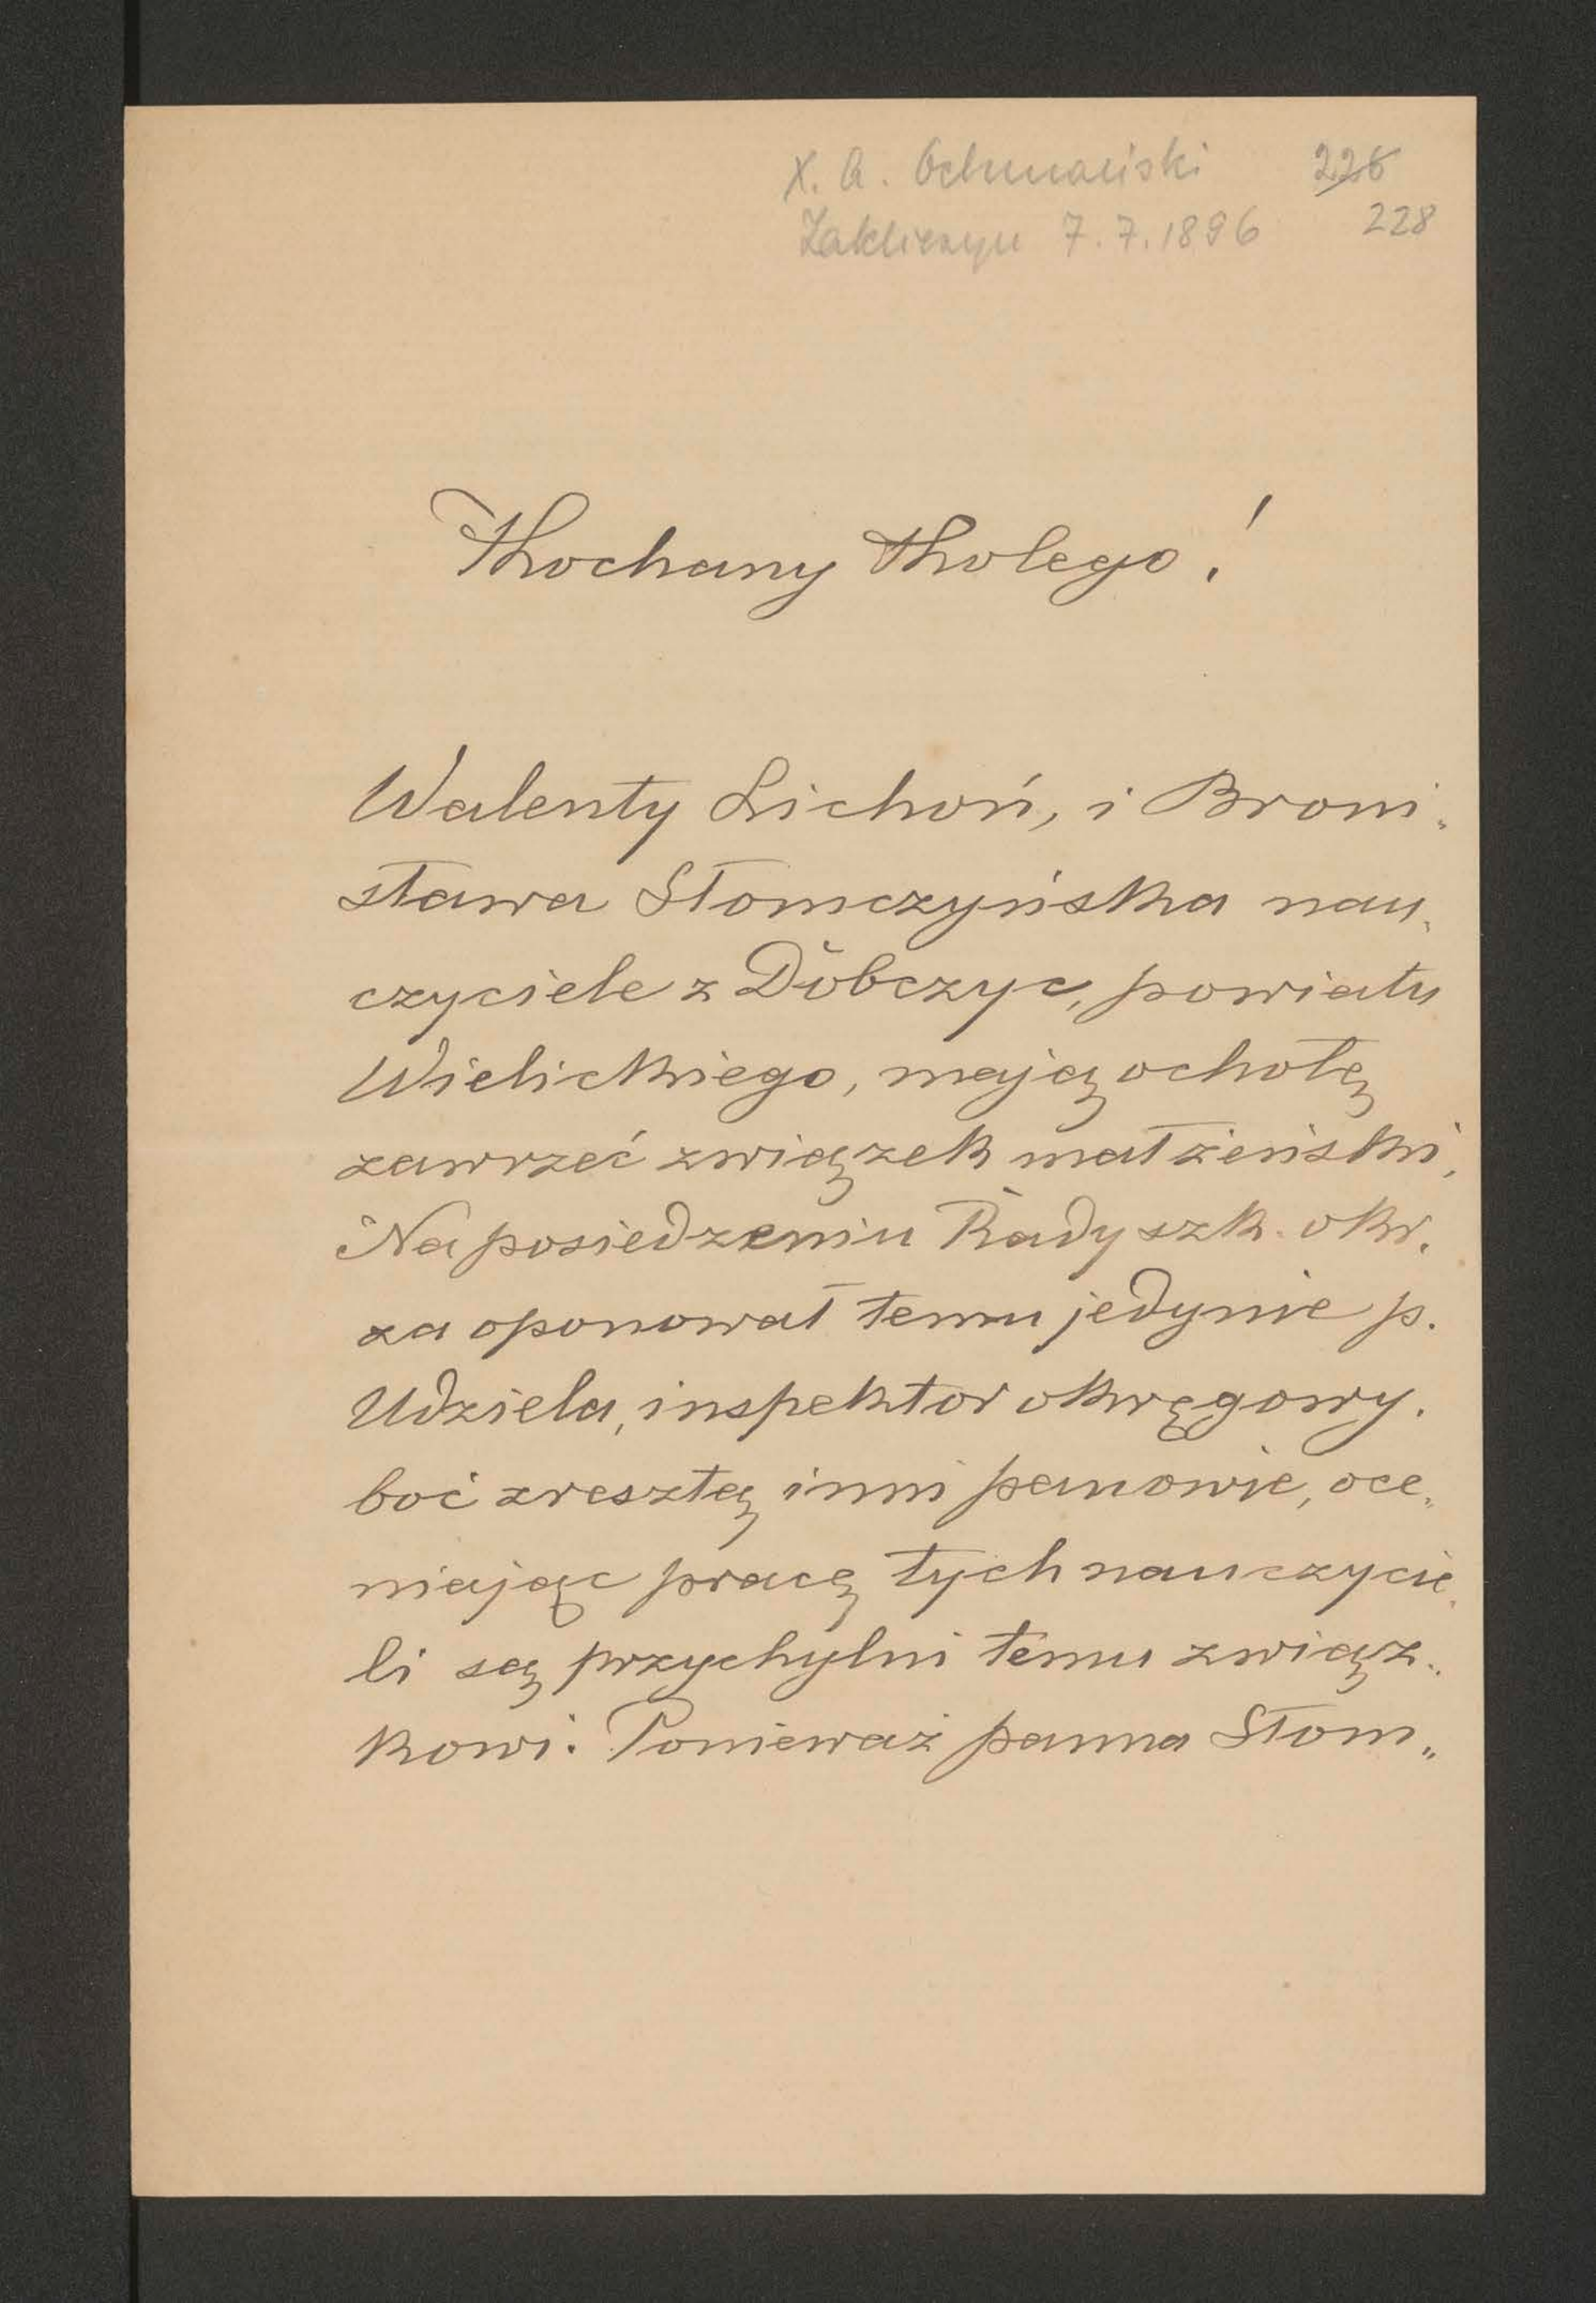 X. A. Ochmański 226
Zakliczyn 7.7.1896 228
Kochany Kolego!
Walenty Lichoń, i Broni„
sława Słomczyńska nau„
czyciele z Dobczyc, powiatu
Wielickiego, mają ochotę
zawrzeć związek małżeński,
Na posiedzeniu Rady szk. okr.
za oponował temu jedynie p.
Udziela, inspektor okręgowy.
boć zresztą inni panowie, oce„
niając pracę tych nauczycie„
li są przychylni temu związ„
kowi. Ponieważ panna Słom„